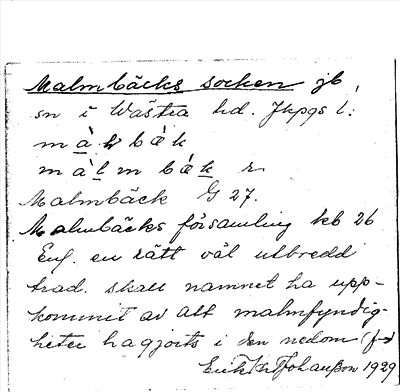 Malmbäcks socken jb
sn i Västra hd. Jkpgs l:
m à b á k
m à l m b á k r.
Malmbäck G 27.
Malmbäcks församling kb 26
Enl. en rätt väl utbredd
trad. skall namnet ha upp-
kommit av att malmfyndig-
heter ha gjorts i den nedom (f→)
Erik Johansson 1929